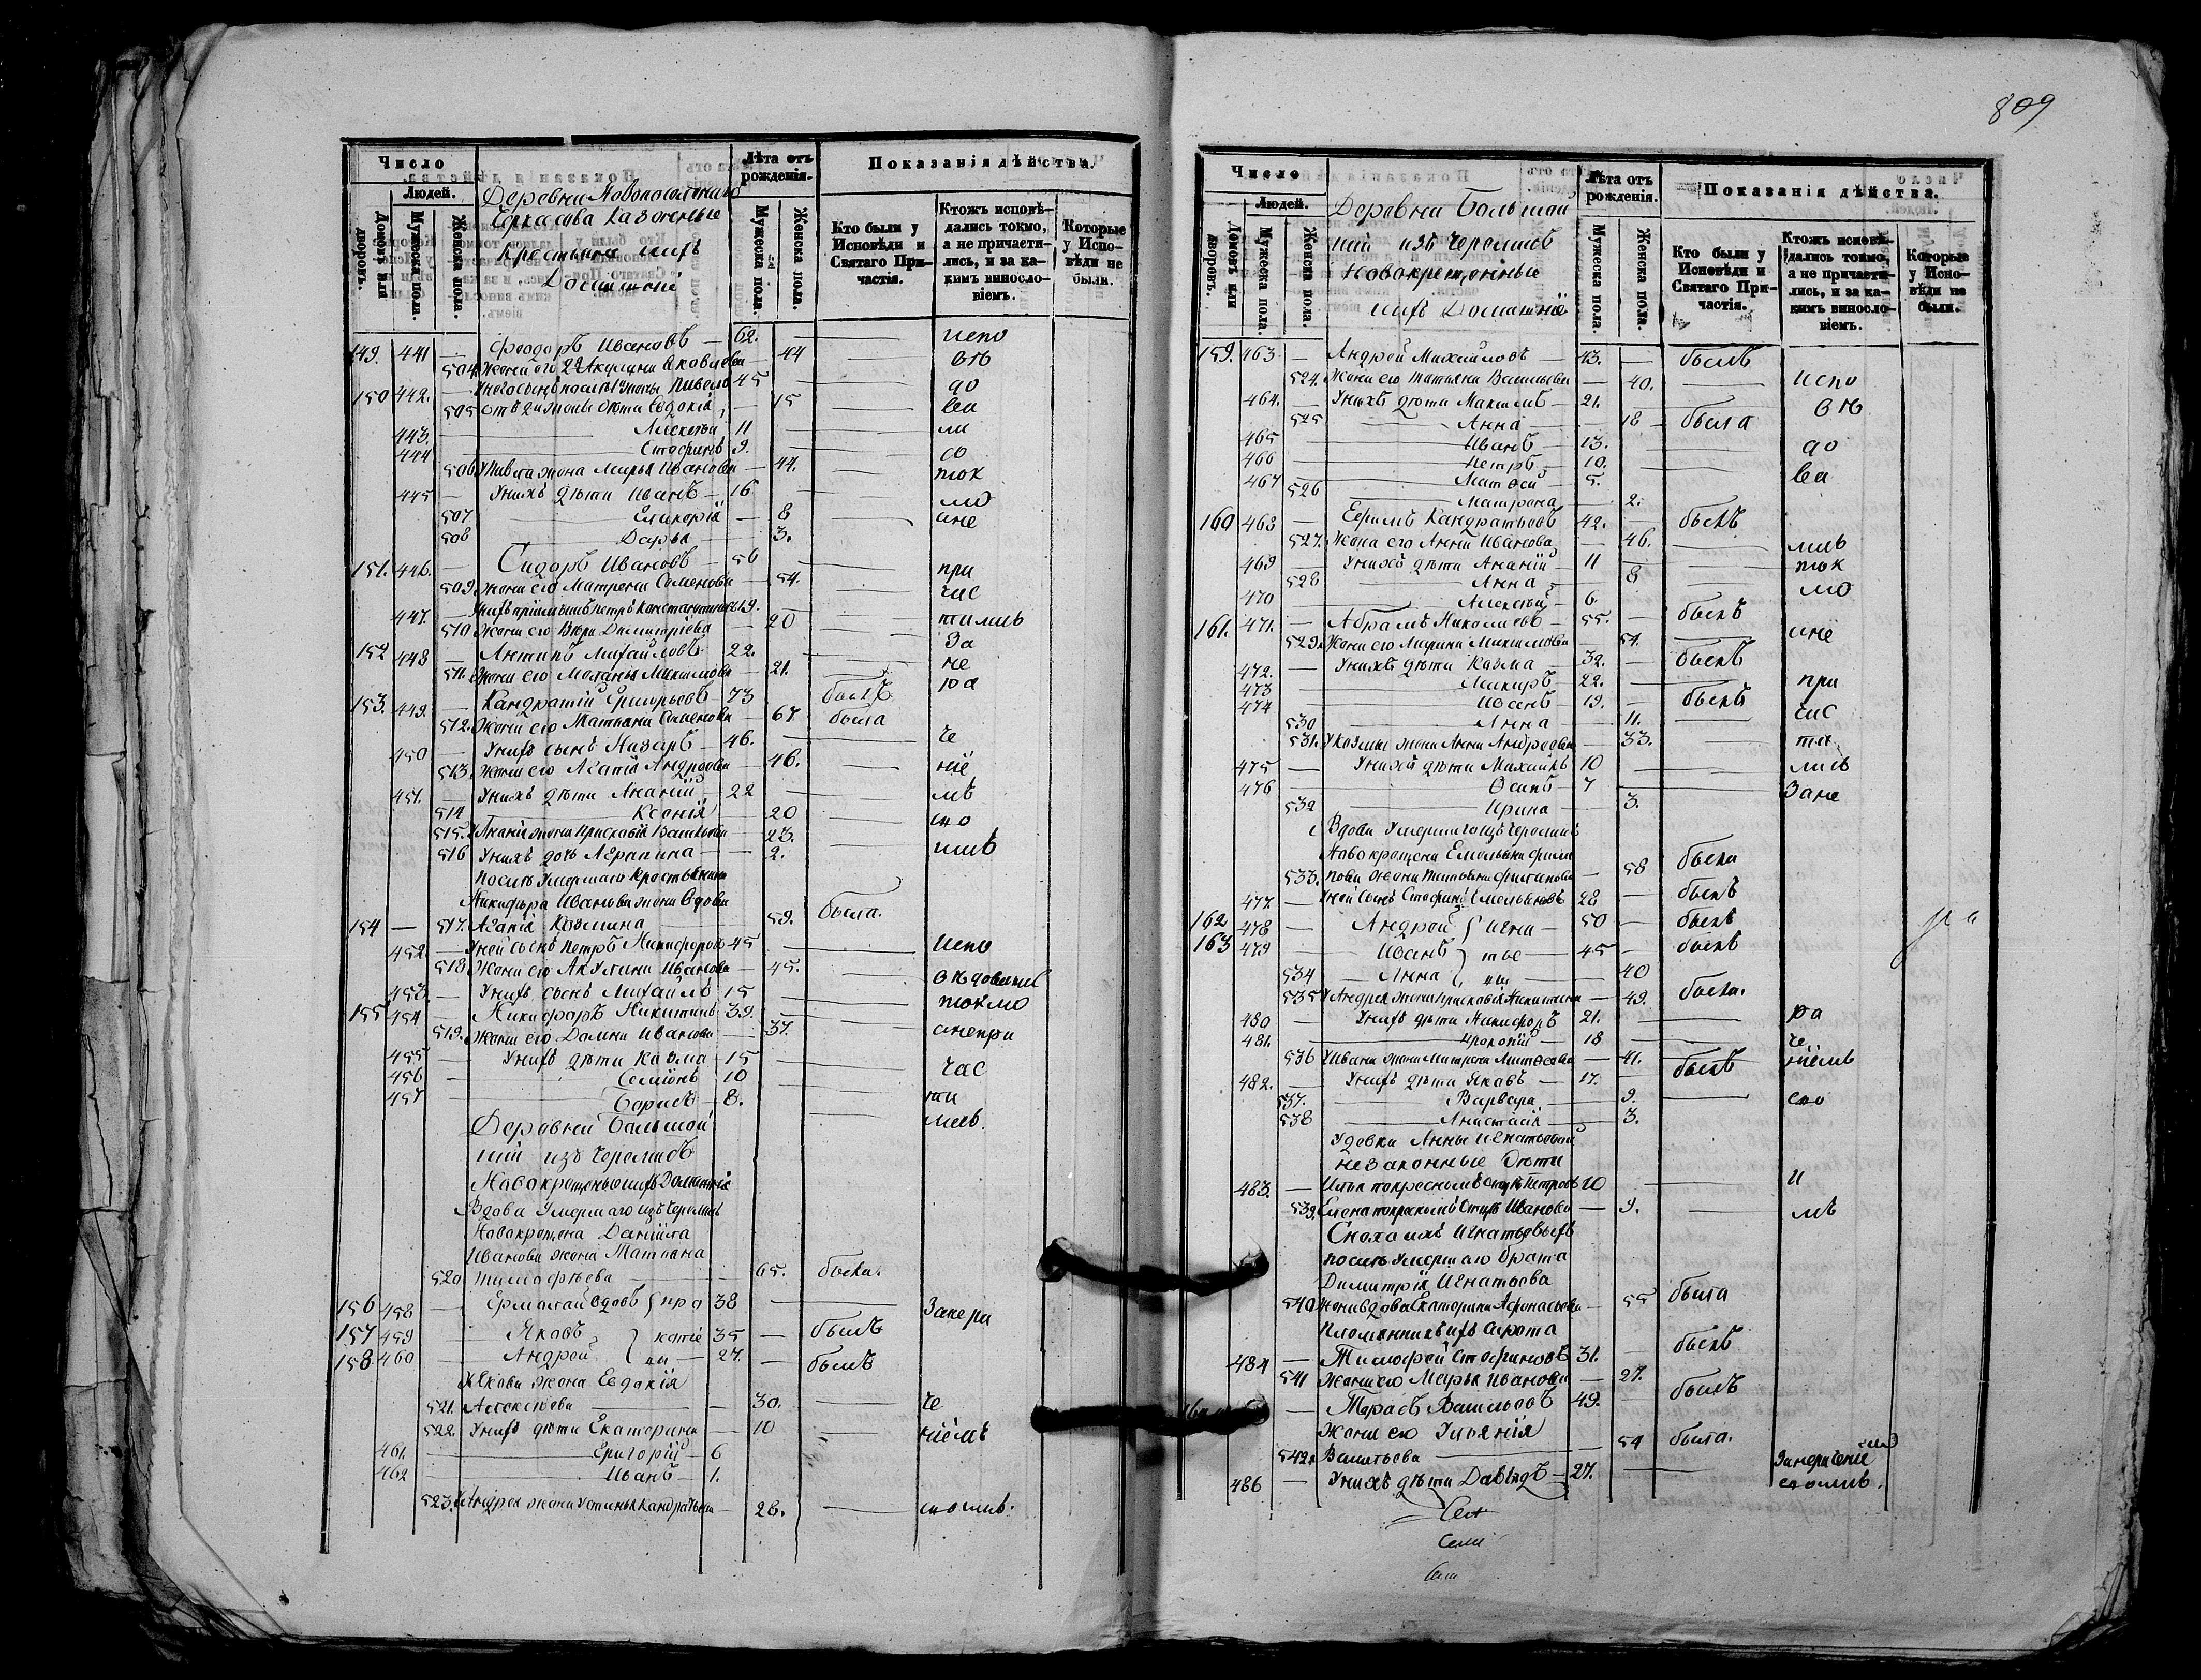 809
Число
Людей.
Домовъ или дворовъ.
Мужеска пола.
Женска пола.
Деревни Новопоселеннаго
Черкасова Казенные
крестьяна ихъ
Домашніе
Лѣта отъ рожденія.
Мужеска пола.
Женска пола.
Показанія дѣйства.
Кто были у Исповѣди и Святаго Причастія.
Ктожъ исповѣдались токмо, а не причастились, и за какимъ винословіемъ.
Которые у Исповѣди не были.
149. 441 — Феодоръ Ивановъ — 62. — испо
504. Жена его 2я Акулина Яковлева — 44 — вѣ
150 442. 45 — до
505 отъ 2й жены дѣти Евдокія — 15 — ва
443. — Алексѣй 11 — ли
444 — Стефанъ 9. — со
506 жена Марья Иванова — 44. — ток
445 — У нихъ дѣти Иванъ — 16 — мо
507 — 8 — ане
508 — Дарья — 3.
151. 446. — Сидоръ Ивановъ — 56 — при
509 Жена его Матрена Семенова — 54. — час
447. — Петръ Константиновъ 19. — тились
510 Жена его Вѣра Димитріева — 20 — За
152 448 — Антипъ Михайловъ 22. — не
511. Жена его Меланья Максимова — 21. — ра
153. 449. — Кандратій Григорьевъ — 73 былъ
512. Жена его Татьяна Семенова — 67 была
450 — У нихъ сынъ Назаръ — 46. — че
513. Жена его Агапія Андреева — 46. — ніе
451. — У нихъ дѣти Ананій — 22 — мъ
514 — Ксенія — 20 — сно
515. У Ананія жена Прасковія Васильева — 23.
516 У нихъ дочь Аграпина — 2. — шив
Послѣ умершаго Крестьянина
Никифора Иванова жена Вдова
154 — 517. Агапія Козмина — 59. была.
452 — У ней сынъ Петръ Никифоровъ 45 — Испо
518 Жена его Акулина Иванова — 45. — вѣдовались
453. — У нихъ сынъ Михайлъ 15 — токмо
155 454 — Никифоръ Никитинъ 39. — анепри
519. Жена его Домна Иванова — 37. — час
455 — У нихъ дѣти Казма 15
456 — Семіонъ 10 — ти
457 — Борисъ — 8. — лись.
Деревни Большой
ній изъ Черемисъ
Новокрещеные ихъ Домашніе
Вдова умершаго изъ Черемисъ
Новокрещена Даниіла
Иванова жена Татьяна
520 Тимофѣева — 65. была.
156 458 — Ермолай вдовъ 38 — Закера
157 459 — Яковъ 35 — былъ
158. 460 — Андрей 27. — былъ
У Якова жена Евдокія
521. Алексѣева — 30. — че
522. У нихъ дѣти Екатерина — 10 — ніемъ
461. — Григорій — 6
462 — Иванъ — 1.
523. У Андрея жена Устинья Кандратьева — 28. —
Число
Людей.
Домовъ или дворовъ.
Мужеска пола.
Женска пола.
Деревни Большой
ній изъ Черемисъ
Новокрещенные
ихъ Домашніе
Лѣта отъ рожденія.
Мужеска пола.
Женска пола.
Показанія дѣйства.
Кто были у Исповѣди и Святаго Причастія.
Ктожъ исповѣдались токмо, а не причастились, и за какимъ винословіемъ.
Которые у Исповѣди не были.
159. 463. — Андрей Михайловъ — 43. — былъ
524. Жена его Татьяна Васильева — 40. — испо
464. — У нихъ дѣти Максимъ — 21. вѣ
525 — Анна — 18 — была
465 — Иванъ — 13. — до
466 — Петръ — 10. — ва
467 — Матвей — 5.
526 — Матрона — 2.
160 468 — Ефримъ Кандратьевъ 42. — былъ
527. Жена его Анна Иванова — 46. — лись
469 — У нихъ дѣти Ананій — 11 — ток
528 — Анна — 8 — мо
470 — Алексѣй — 6.
161. 471. — Абрамъ Николаевъ — 55. — былъ
529. Жена его Марина Максимова — 51. — ане
472. — У нихъ дѣти Казма — 32. — былъ
473 — Макаръ — 22. — при
474 — Иванъ — 19. — былъ
530 — Анна — 11. — час
531. У Казмы жена Анна Андреева — 33. — ти
475 — У ней дѣти Михайлъ 10 — лись
476 — Осипъ — 7 — Зане
532 — Ирина — 3.
Вдова умершаго изъ Черемисъ
Новокрещена Емельяна Фили
533. пова жена Татьяна — 58 была
477. — У ней сынъ Стефанъ Емельяновъ 28 — былъ
162 478 — Андрей 50 — былъ
163 479 — Иванъ 45 — былъ
534 — Анна — 40
535 У Андрея жена Прасковія Никитина — 49. была.
480 — У нихъ дѣти Никифоръ 21. — ра
481. — Прокопій — 18 — че
536 У Ивана жена Матрена Матвеева — 41. — ніемъ
482. — У нихъ дѣти Яковъ — 17. былъ
537. — Варвара — 9. — сно
538 — Анастасія — 3.
У девки Анны Игнатьевой
незаконные дѣти
483. — Илья по крестномъ отцѣ Петровъ 10 — и
539. Елена по крестномъ отцѣ Иванова — 9. — мъ
Сноха ихъ Игнатьевыхъ
послѣ умершаго брата
Димитрія Игнатьева
540 жена вдова Екатерина Афонасьева — 55 была
Племянникъ ихъ сирота
484 — Тимофей Стефановъ 31. — былъ
541 Жена его Марья Иванова — 27.
— Тарасъ Васильевъ 49. — былъ
Жена его Ульянія
542. Васильева — 54 была.
486 — У нихъ дѣти Давыдъ — 27. —
Сем
Семи
Сем